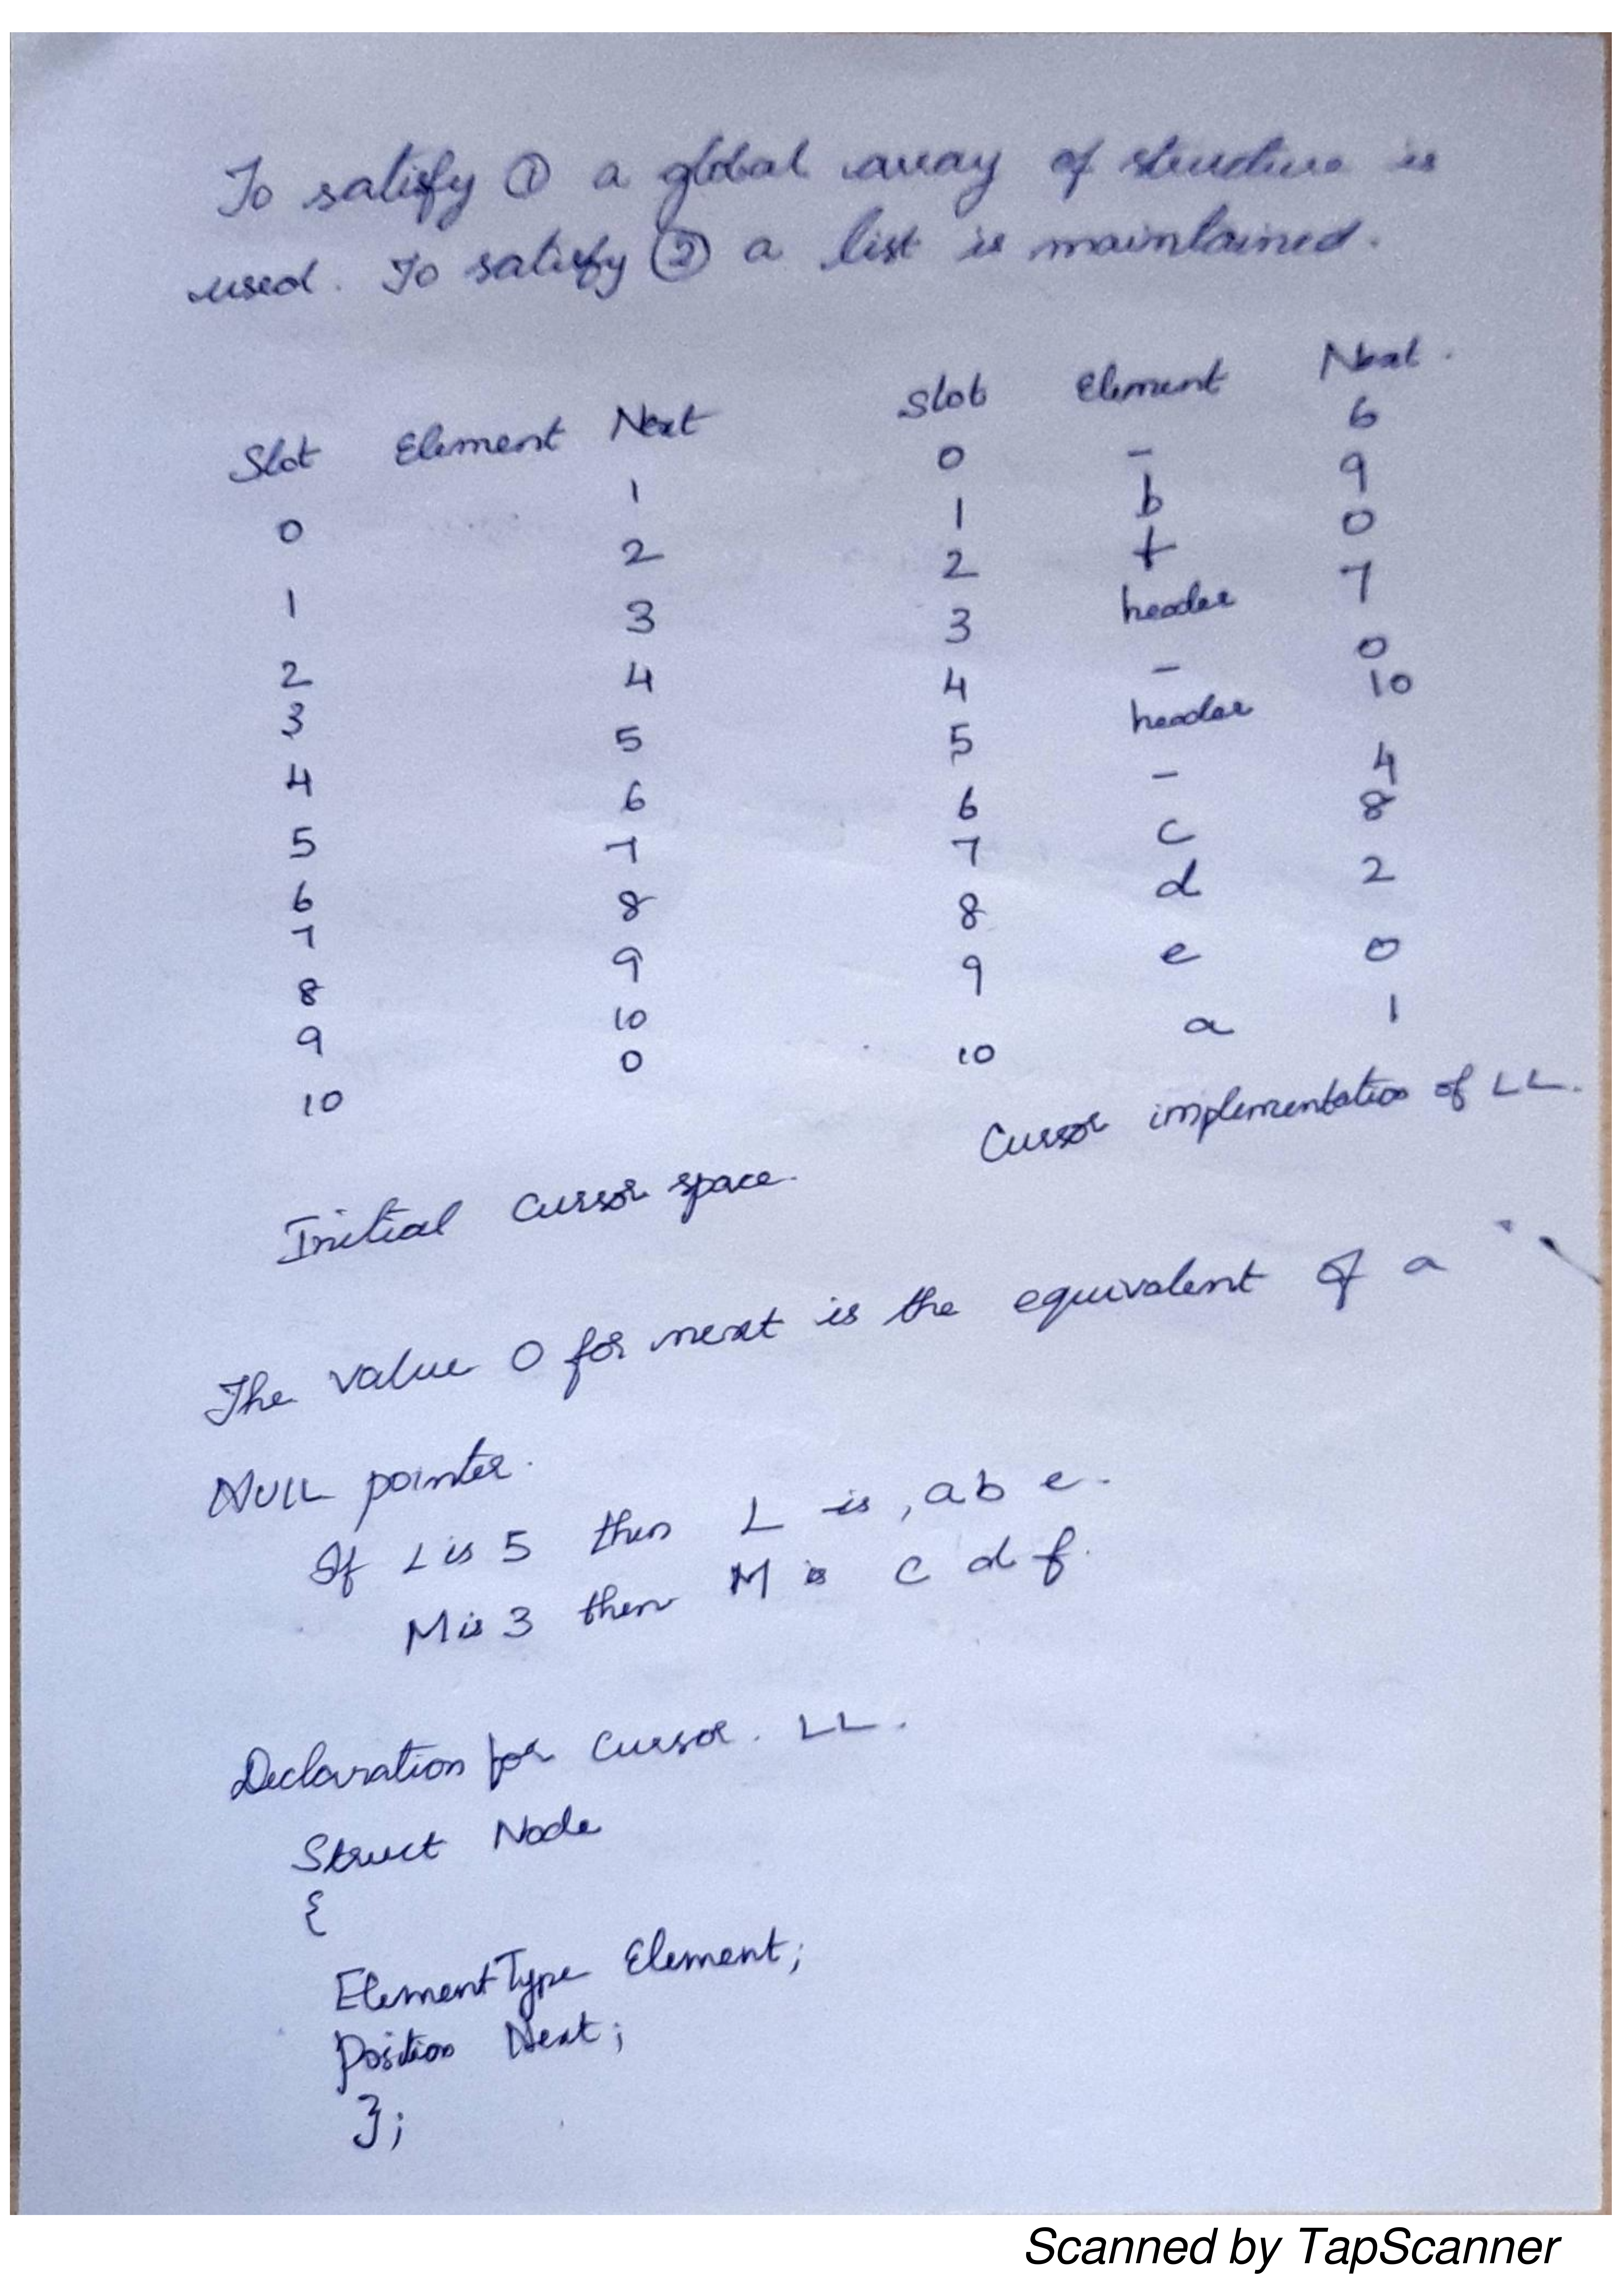 To satisfy ① a global array of structure is
used. To satisfy ② a list is maintained.
Slot Element Next
0 1
1 2
2 3
3 4
4 5
5 6
6 7
7 8
8 9
9 10
10 0
Initial Cursor space.
Slot Element Next.
0 - 6
1 b 9
2 f 0
3 header 7
4 - 0
5 header 10
6 - 4
7 c 8
8 d 2
9 e 0
10 a 1
Cursor implementation of LL.
The value 0 for next is the equivalent of a
NULL pointer.
If L is 5 then L is , a b e.
M is 3 then M is c d f.
Declaration for Cursor. LL.
Struct Node
{
ElementType Element;
Position Next;
};
Scanned by TapScanner